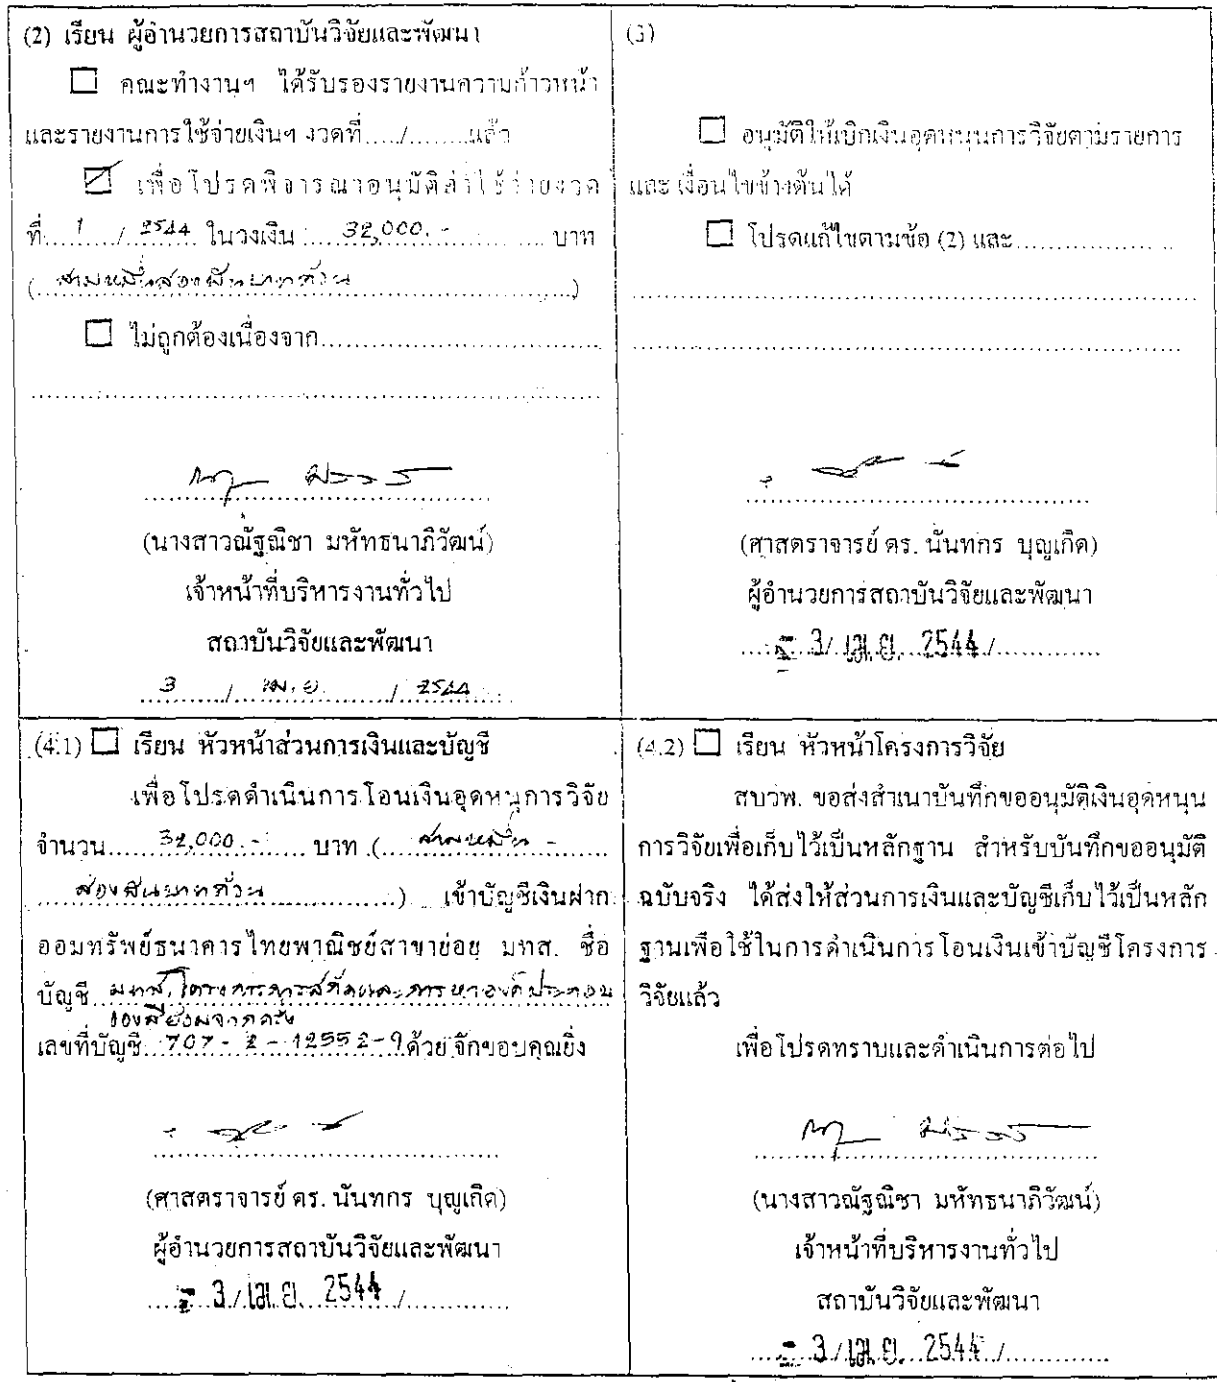 (2) เรียน ผู้อำนวยการสถาบันวิจัยและพัฒนา
คณะทำงานฯ ได้รับรองรายงานความก้าวหน้า
และรายงานการใช้จ่ายเงินฯ งวดที่...../.........แล้ว
เพื่อโปรดพิจารณาอนุมัติค่าใช้จ่ายงวด
ที่ 1 / 2544 ในวงเงิน 32,000.- บาท
(สามหมื่นสองพันบาทถ้วน)
ไม่ถูกต้องเนื่องจาก
(นางสาวณัฐณิชา มหัทธนาภิวัฒน์)
เจ้าหน้าที่บริหารงานทั่วไป
สถาบันวิจัยและพัฒนา
3 / เม.ย. / 2544
(3)
อนุมัติให้เบิกเงินอุดหนุนการวิจัยตามรายการ
และเงื่อนไขข้างต้นได้
โปรดแก้ไขตามข้อ (2) และ
(ศาสตราจารย์ ดร. นันทกร บุญเกิด)
ผู้อำนวยการสถาบันวิจัยและพัฒนา
3 / เม.ย. 2544 /
(4.1) เรียน หัวหน้าส่วนการเงินและบัญชี
เพื่อโปรดดำเนินการโอนเงินอุดหนุการวิจัย
จำนวน 32,000.- บาท (สามหมื่น -
สองพันบาทถ้วน) เข้าบัญชีเงินฝาก
ออมทรัพย์ธนาคารไทยพาณิชย์สาขาย่อย มทส. ชื่อ
บัญชี มทส. โครงการการสกัดและการหาองค์ประกอบ
ของสีย้อมจากครั่ง
เลขที่บัญชี 707-2-12552-9 ด้วย จักขอบคุณยิ่ง
(ศาสตราจารย์ ดร. นันทกร บุญเกิด)
ผู้อำนวยการสถาบันวิจัยและพัฒนา
3 / เม.ย. 2544 /
(4.2) เรียน หัวหน้าโครงการวิจัย
สบวพ. ขอส่งสำเนาบันทึกขออนุมัติเงินอุดหนุน
การวิจัยเพื่อเก็บไว้เป็นหลักฐาน สำหรับบันทึกขออนุมัติ
ฉบับจริง ได้ส่งให้ส่วนการเงินและบัญชีเก็บไว้เป็นหลัก
ฐานเพื่อใช้ในการดำเนินการโอนเงินเข้าบัญชีโครงการ
วิจัยแล้ว
เพื่อโปรดทราบและดำเนินการต่อไป
(นางสาวณัฐณิชา มหัทธนาภิวัฒน์)
เจ้าหน้าที่บริหารงานทั่วไป
สถาบันวิจัยและพัฒนา
3 / เม.ย. 2544 /